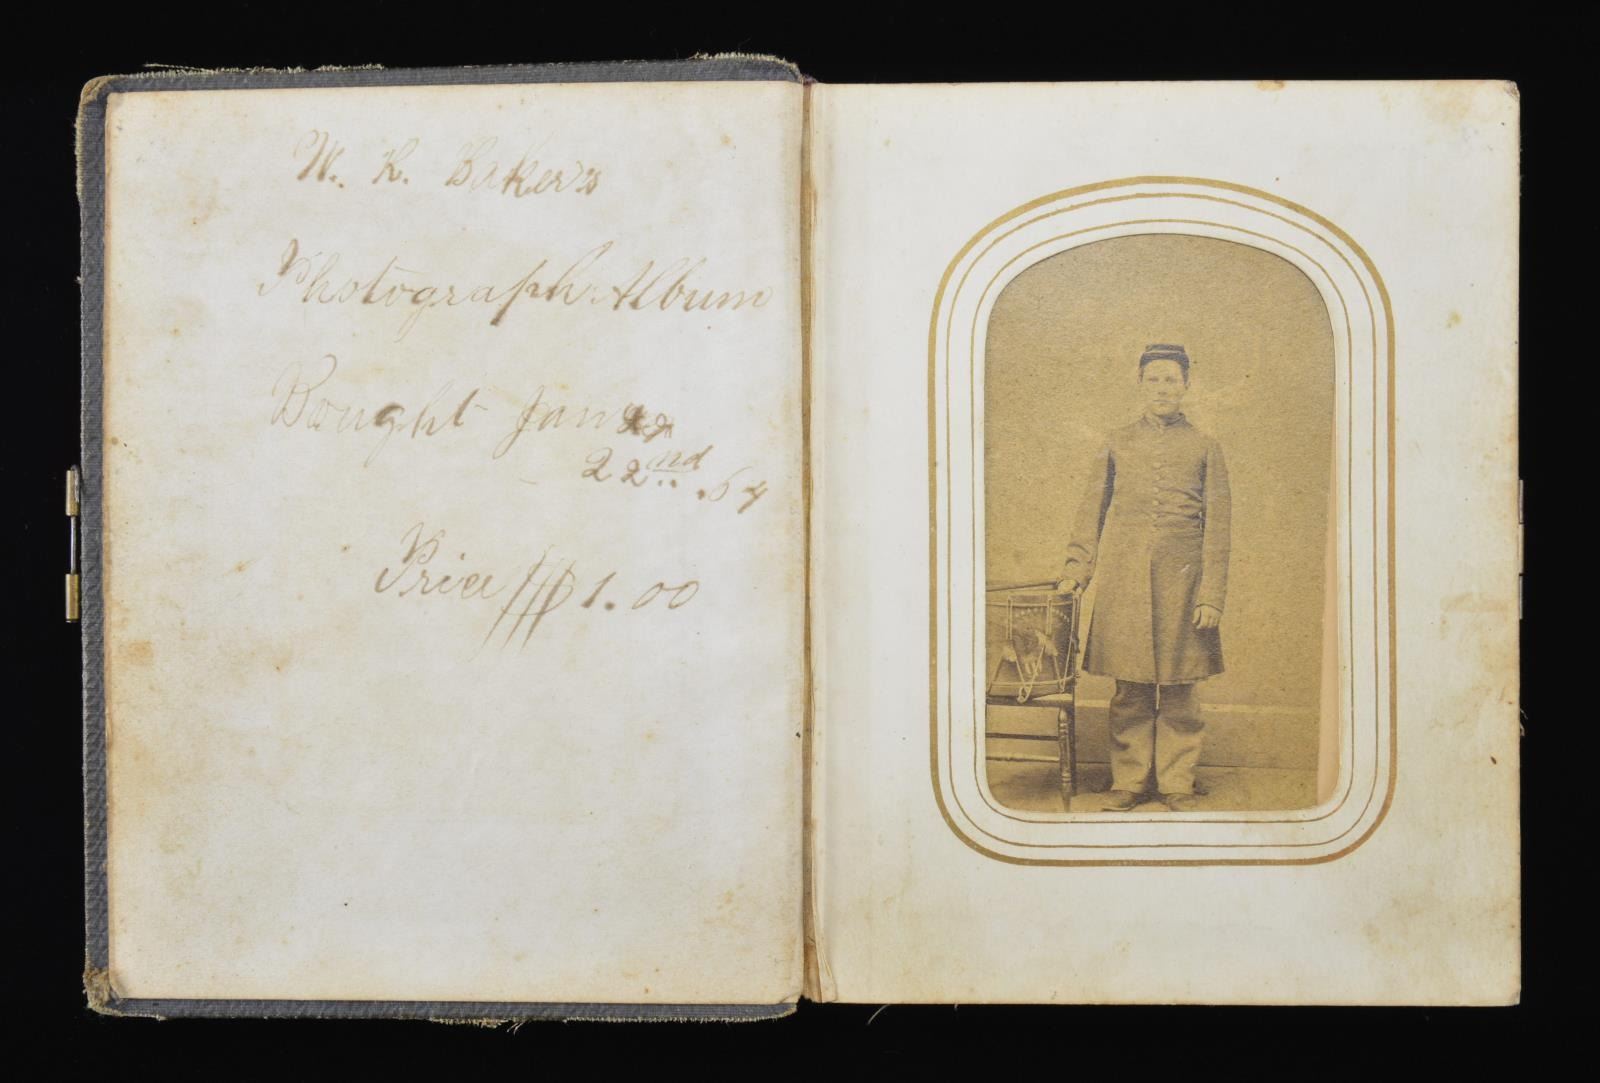 W. R. Baker's
Photograph Album
Bought Jan
22nd .64
Price $1.00